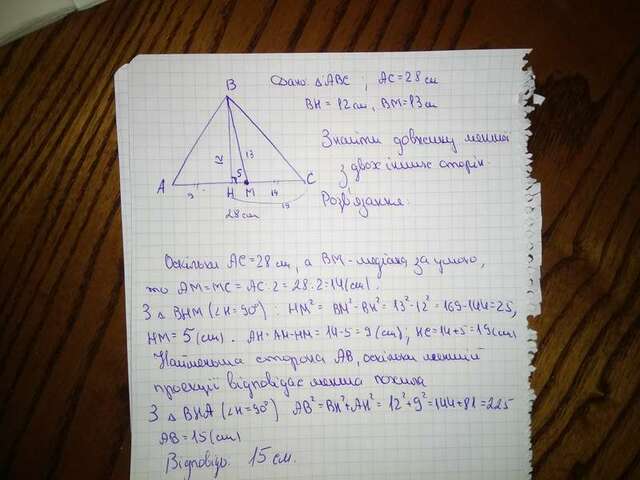 Дано: ΔABC; AC=28 см
BH=12 см, BM=13 см
Знайти довжину менша
з двох інших сторін.
Розв'язання:
B
12
13
5
A
H
M
14
C
9
28 см
19
Оскільки AC=28 см, а BM-медіана за умовою,
то AM=MC=AC:2=28:2=14(см).
З Δ BHM (∠H=90°): HM²=BM²-BH²=13²-12²=169-144=25,
HM=5(см). AH=AM-HM=14-5=9(см); HC=14+5=19(см)
Найменша сторона AB, оскільки меншій
проекції відповідає менша похила
З Δ BHA (∠H=90°) AB²=BH²+AH²=12²+9²=144+81=225
AB=15(см)
Відповідь. 15 см.